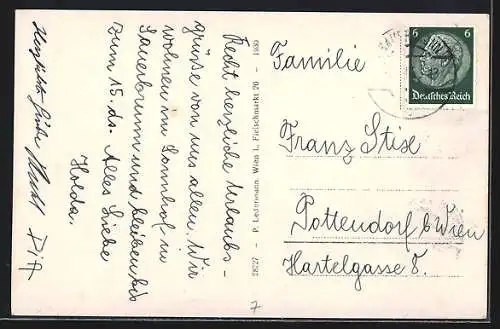 Recht herzliche Urlaubs-
grüsse von uns allen. Wir
wohnen im Sonnhof in
Sauerbrunn und bleiben bis
zum 15. ds. Alles Liebe
Holda.
Pitt
28727 - P. Ledermann, Wien I., Fleischmarkt 20 - 1939
6 6
Deutsches Reich
Familie
Franz Stix
Pottendorf b/Wien
Hartelgasse 8.
7